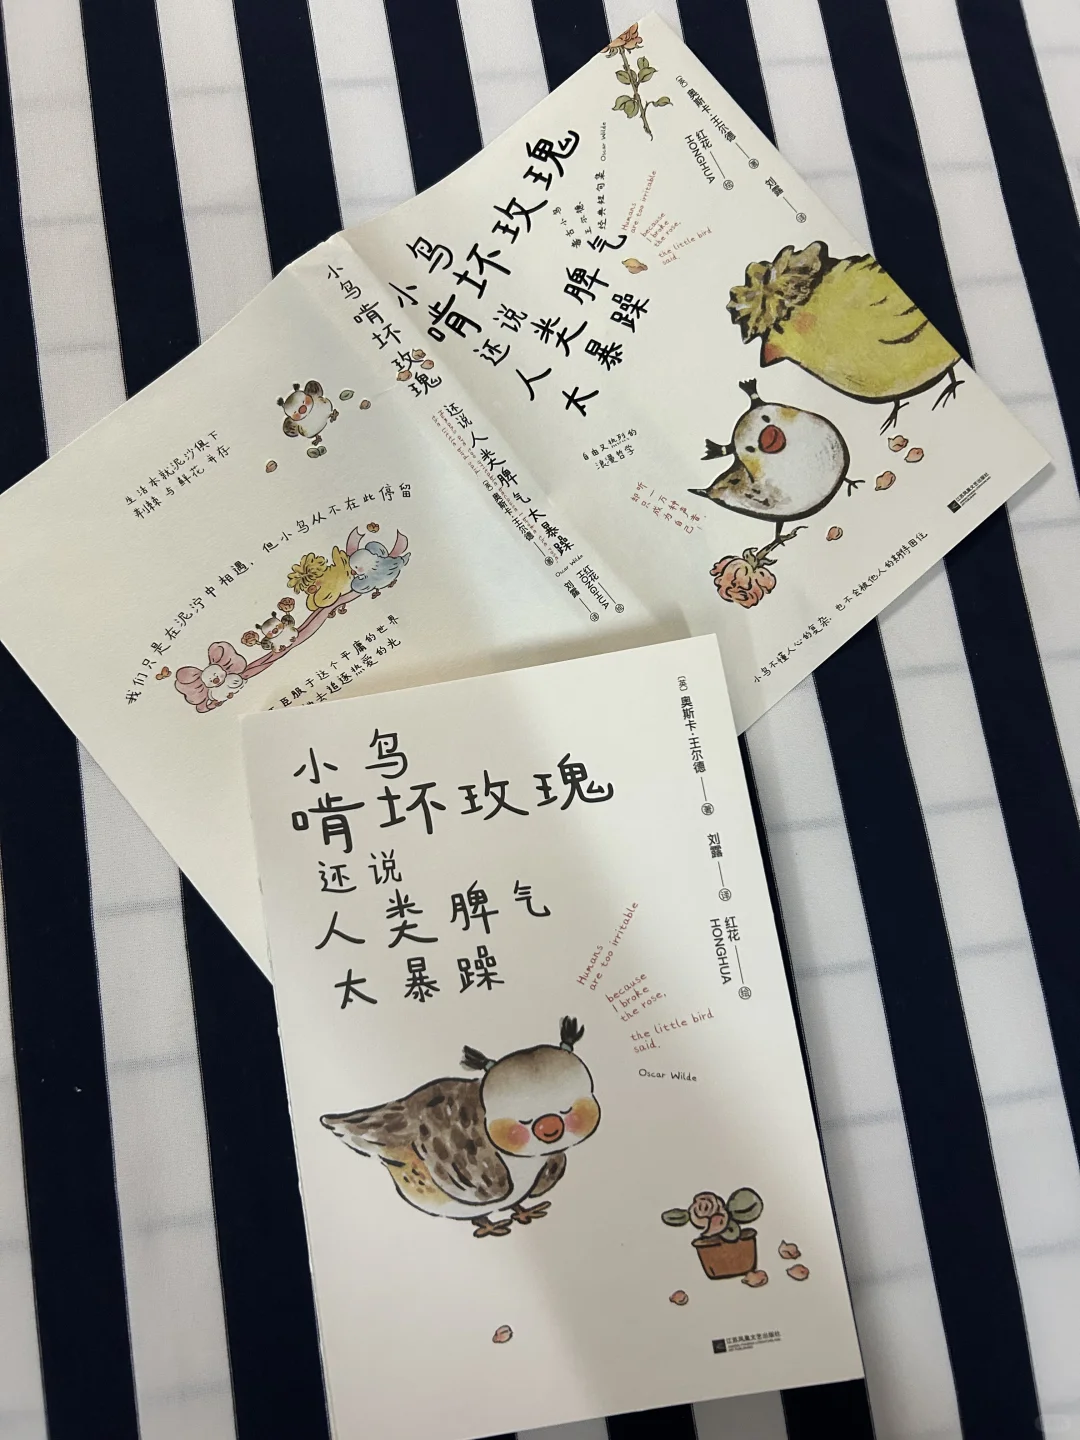 小鸟
啃坏玫瑰
还说
人类脾气
太暴躁
(英)奥斯卡·王尔德——著
刘露——译
红花
HONGHUA——绘
Humans
are too irritable
because
I broke
the rose,
the little bird
said.
Oscar Wilde
江苏凤凰文艺出版社
小鸟
啃坏玫瑰
还说
人类脾气
太暴躁
Oscar Wilde
王尔德
经典短句集
Humans
are too irritable
because
I broke
the rose,
the little bird
said.
(英)奥斯卡·王尔德——著
红花
HONGHUA——绘
刘露——译
自由又热烈的
浪漫哲学
却只成为自己。
江苏凤凰文艺出版社
小鸟不懂人心的复杂,也不会被他人的期待困住
小鸟啃坏玫瑰
还说人类脾气太暴躁
(英)奥斯卡·王尔德——著
Oscar Wilde
红花
HONGHUA——绘
刘露——译
生活本就泥沙俱下
荆棘与鲜花并存
我们只是在泥泞中相遇,但小鸟从不在此停留
臣服于这个平庸的世界
去追逐热爱的光